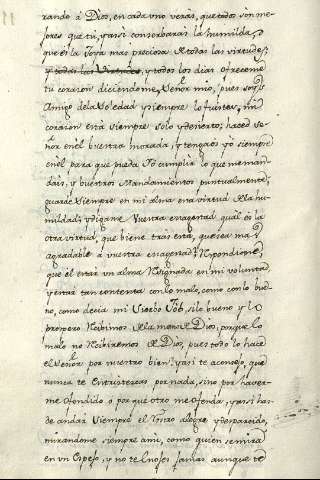 rando á Dios, en cada uno verás, que todos son me-
jores que tú, y assi conserbarás la humilda,
que es la Joya mas preciosa de todas las virtudes;
y todas las virtudes, y todos los dias ofreceme
tu corazon diciendome, Señor mio, pues sois
Amigo dela Soledad y siempre lo fuisteis, mi
corazon está siempre solo y decierto; haced Se-
ñor en el buestra morada, y tengaos yo siempre
en el para que pueda Yo cumplir lo que me man-
dais, y buestros Mandamientos puntualmente,
guarde siempre en mi alma esta virtud de la hu-
mildad; y digame Vuestra Magestad qual és la
otra virtud, que biene tras esta, que sea mas
agradable a vuestra Magestad? Respondiome,
que el estar un alma Resignada en mi voluntad,
y estar tan contenta con lo malo, como con lo bue-
no, como decia mi Siervo Job, si lo bueno y lo
prospero Recibimos de la mano de Dios, porque lo
malo no Recibiremos de Dios, pues todo lo hace
el Señor por nuestro bien? y assi te aconsejo, que
nunca te entristescas por nada, sino por haver-
me ofendido o por que otro me ofenda, y assi has
de andar siempre el rostro alegre y desparcido,
mirandome siempre a mi, como quien se mira
en un Espejo, y no te enojes Jamas aunque te